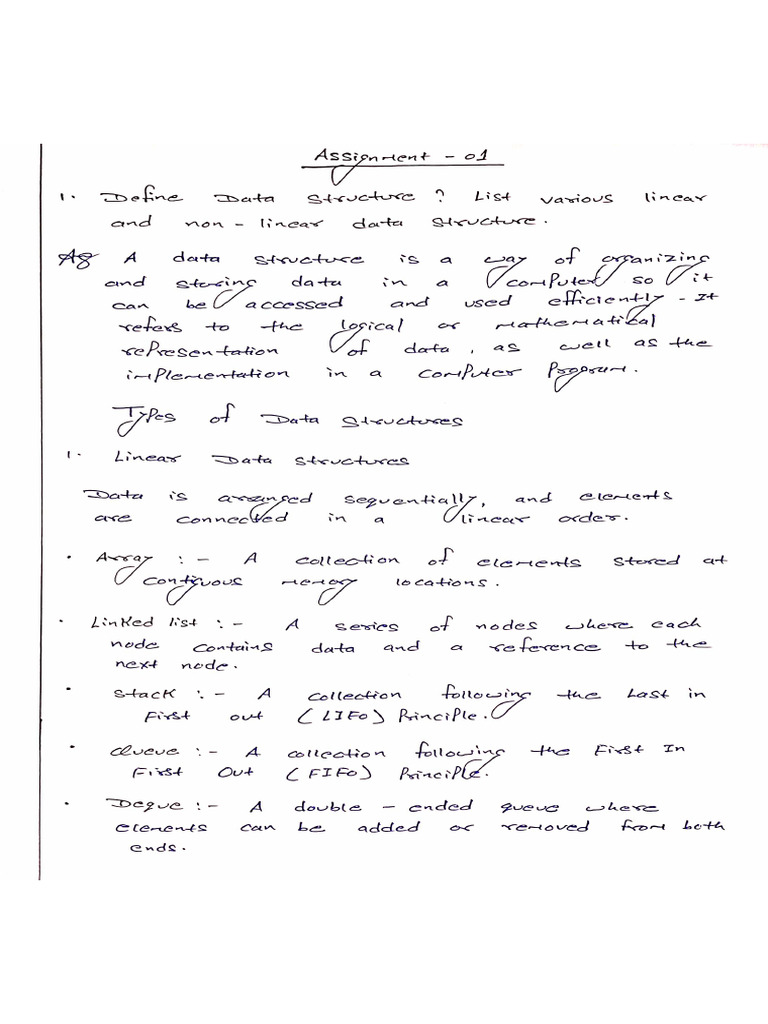 Assignment - 01
1. Define Data Structure? List various linear
and non-linear data structure.
A data structure is a way of organizing
and storing data in a computer so it
can be accessed and used efficiently. It
refers to the logical or mathematical
representation of data, as well as the
implementation in a computer program.
Types of Data Structures
1. Linear Data Structures
Data is arranged sequentially, and elements
are connected in a linear order.
• Array :- A collection of elements stored at
contiguous memory locations.
• Linked list :- A series of nodes where each
node contains data and a reference to the
next node.
• Stack :- A collection following the Last in
First out (LIFO) Principle.
• Queue :- A collection following the First In
First Out (FIFO) Principle.
• Deque :- A double-ended queue where
elements can be added or removed from both
ends.